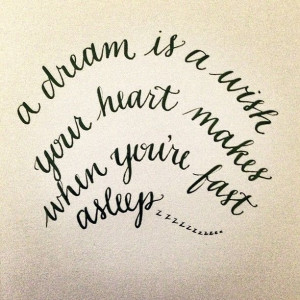 a dream is a wish
your heart makes
when you're fast
asleep zzzzzz..........